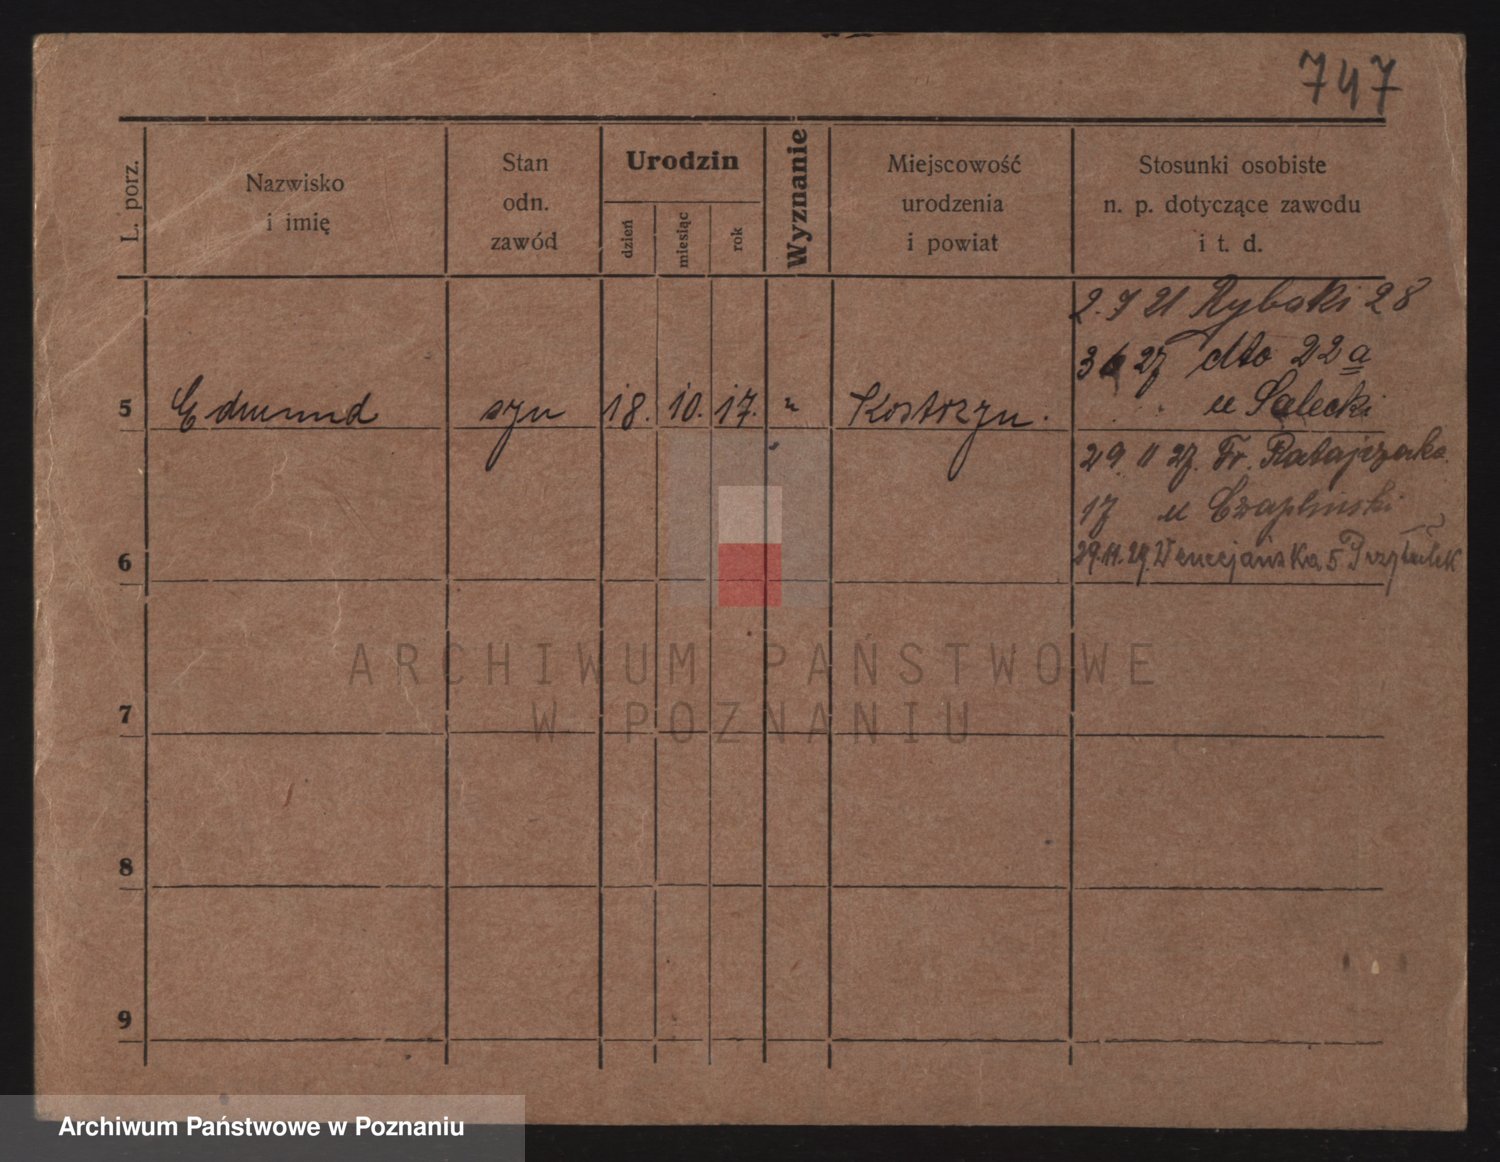 747
L. porz.
Nazwisko
i imię
Stan
odn.
zawód
Urodzin
dzień
miesiąc
rok
Wyznanie
Miejscowość
urodzenia
i powiat
Stosunki osobiste
n. p. dotyczące zawodu
i t. d.
2. 7 21 Rybaki 28
3 6 27 dto 22a
5 Edmund syn 18. 10. 17. " Kostrzyn. u Salecki
29. 11 27. Fr. Ratajczaka
17 u Czapliński
6
29.11.27. Wenecjańska 5
ARCHIWUM PAŃSTWOWE
W POZNANIU
7
8
9
Archiwum Państwowe w Poznaniu